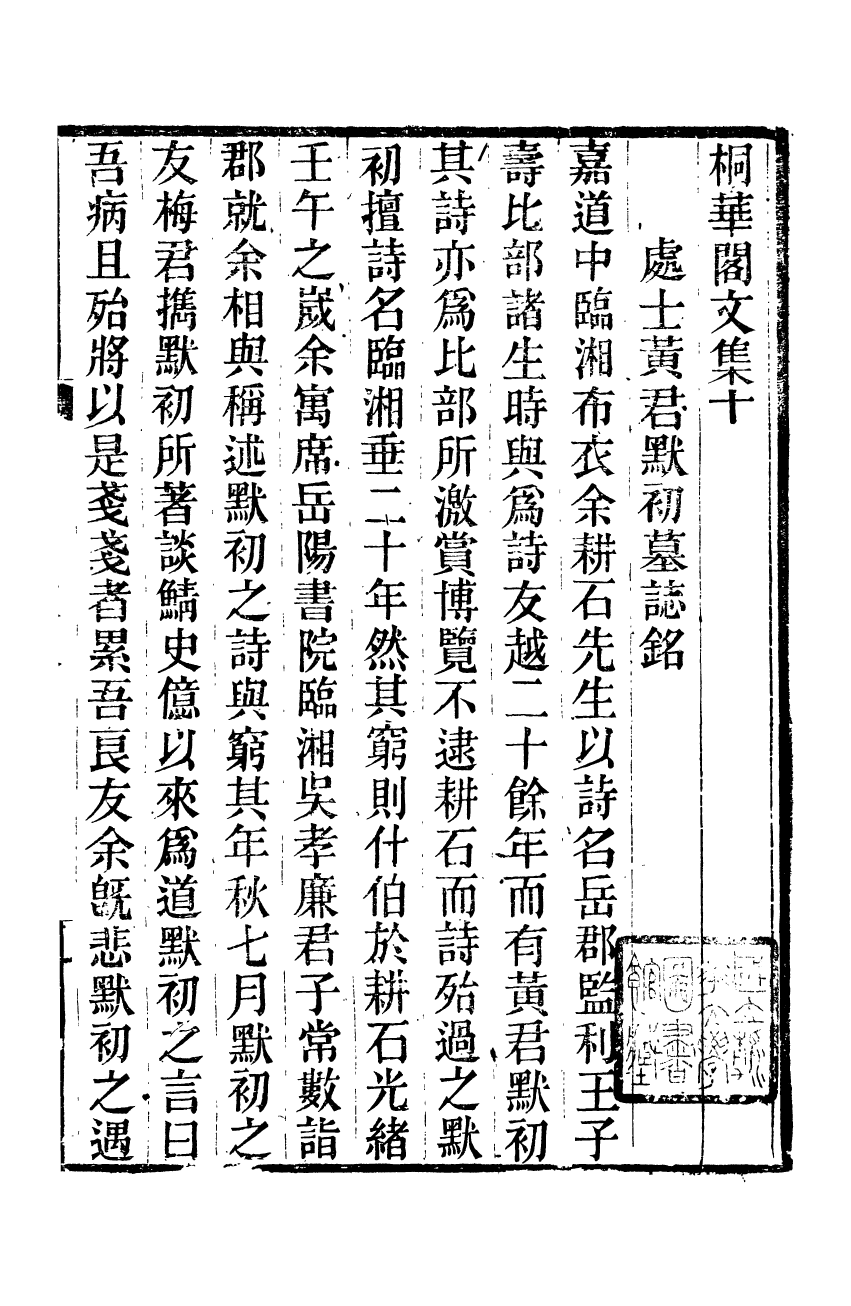 桐華閣文集十
處士黃君默初墓誌銘
嘉道中臨湘布衣余耕石先生以詩名岳郡監利王子
壽比部諸生時與爲詩友越二十餘年而有黃君默初
其詩亦爲比部所激賞博覽不逮耕石而詩殆過之默
初擅詩名臨湘垂二十年然其窮則什伯於耕石光緒
壬午之嵗余寓席岳陽書院臨湘吳孝廉君子常數詣
郡就余相與稱述默初之詩與窮其年秋七月默初之
友梅君攜默初所著談鯖史億以來爲道默初之言曰
吾病且殆將以是戔戔者累吾良友余旣悲默初之遇